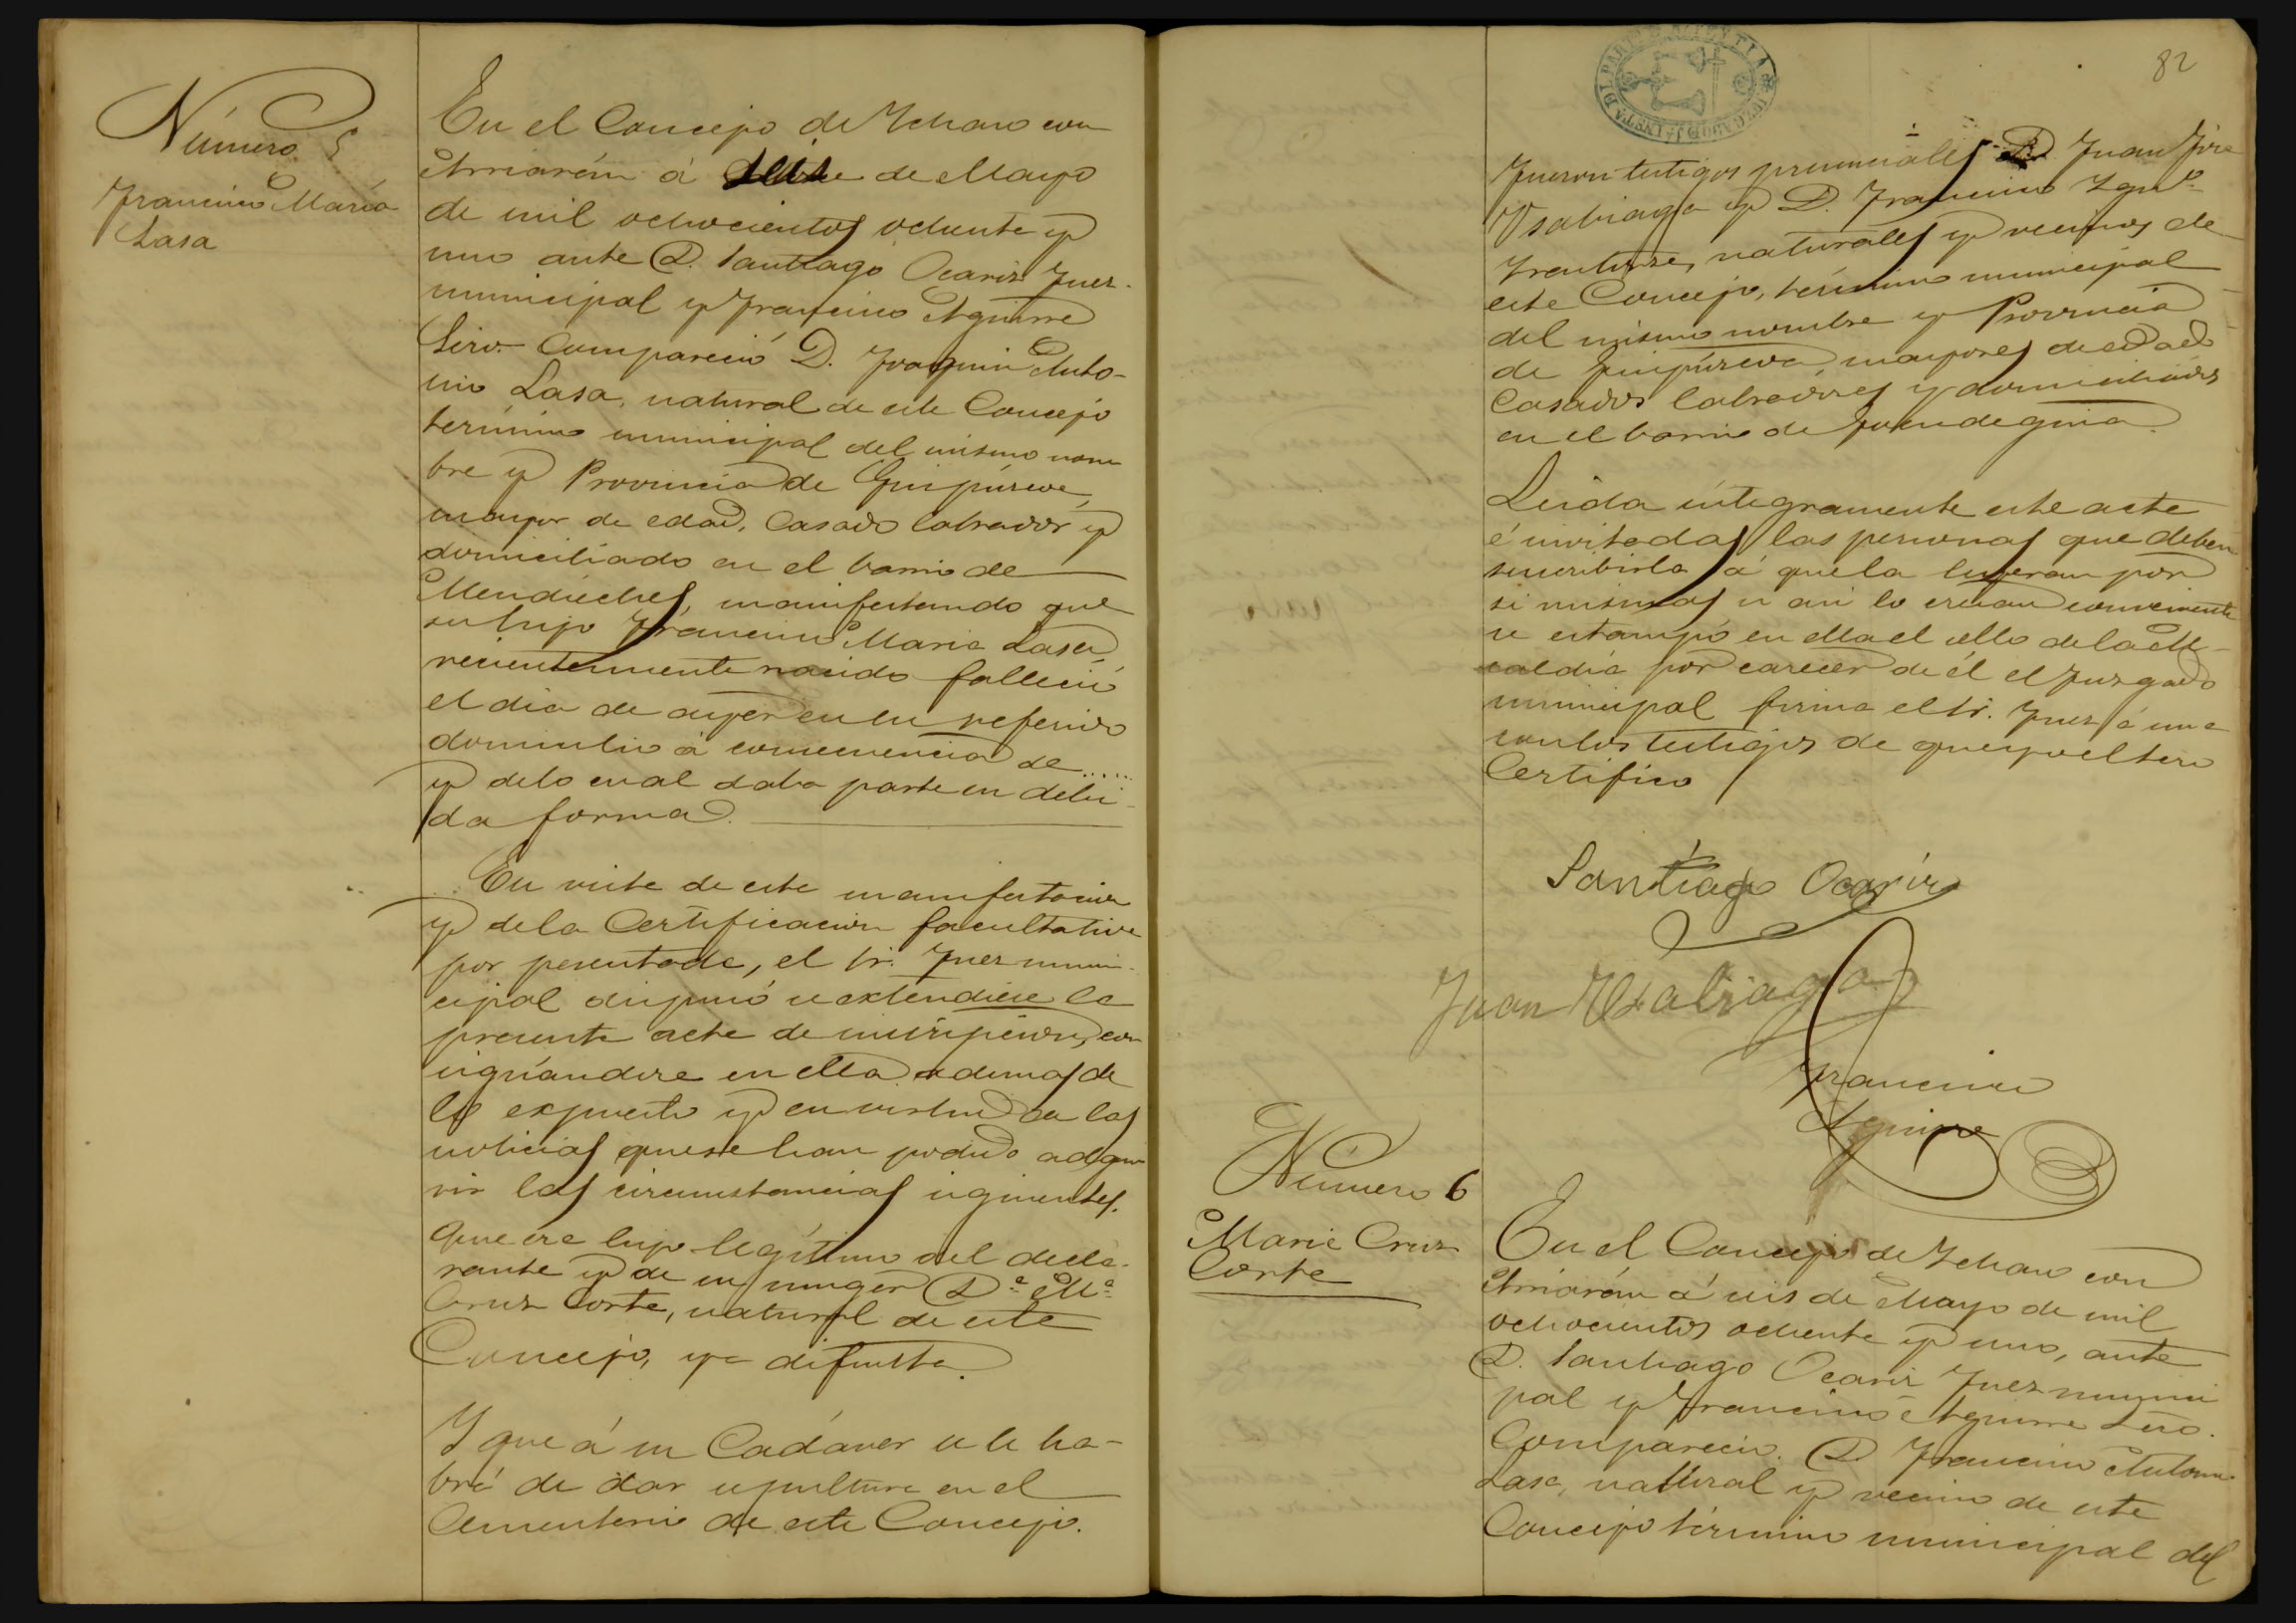 Número 5
Francisco María
Lasa
En el Concejo de Ichaso con
Arriarán á seis de Mayo
de mil ochocientos ochenta y
uno ante D. Santiago Ocariz Juez
municipal y Francisco Aguirre
Srio. Compareció D. Joaquin Anto-
nio Lasa, natural de este Concejo
término municipal del mismo nom
bre y Provincia de Guipúzcoa,
mayor de edad, Casado labrador y
domiciliado en el barrio de
manifestando que
su hijo Francisco Maria Lasa
recientemente nacido falleció
el dia de ayer en su referido
domicilio á consecuencia de......
y de lo cual daba parte en debi-
da forma.
En vista de esta manifestacion
y de la Certificacion facultativa
por presentada, el Sr. Juez muni-
cipal dispuso se extendiese la
presente acta de inscripcion, con
signándose en ella ademas de
lo expuesto y en virtud de las
noticias que se han podido adqui
rir las circunstancias siguientes.
Que era hijo legítimo del decla-
rante y de su muger D.ª M.ª
Cruz Corta, natural de este
Concejo, ya difunta.
Y que á su Cadáver se le ha-
brá de dar sepultura en el
Cementerio de este Concejo.
82
Fueron testigos presenciales D. Juan José
Usabiaga y D. Francisco Ign.º
naturales y vecinos de
este Concejo, término municipal
del mismo nombre y Provincia
de Guipúzcoa mayores de edad
Casados labradores y domiciliados
en el barrio de
Leida íntegramente este acta
é invitadas las personas que deben
suscribirla á que la leyeran por
si mismas si asi lo creian conveniente
se estampó en ella el sello de la Al-
caldía por carecer de él el Juzgado
municipal firma el Sr. Juez é una
con los testigos de que yo el Srio
Certifico
Santiago Ocariz
Juan Usabiaga
Francisco
Aguirre
Número 6
Maria Cruz
Corta
En el Concejo de Ichaso con
Arriarán á seis de Mayo de mil
ochocientos ochenta y uno, ante
D. Santiago Ocariz Juez munici
pal y Francisco Aguirre Srio.
Compareció D. Francisco Antonio
Lasa, natural y vecino de este
Concejo término municipal del